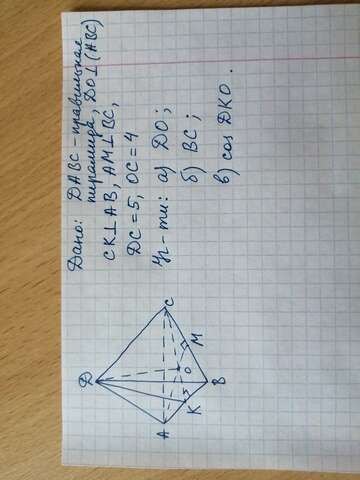 Дано: DABC - правильная
пирамида, DO⊥(ABC)
CK⊥AB, AM⊥BC,
DC=5, OC=4
а) DO;
б) BC;
в) cos DKO.
D
C
M
O
B
K
A